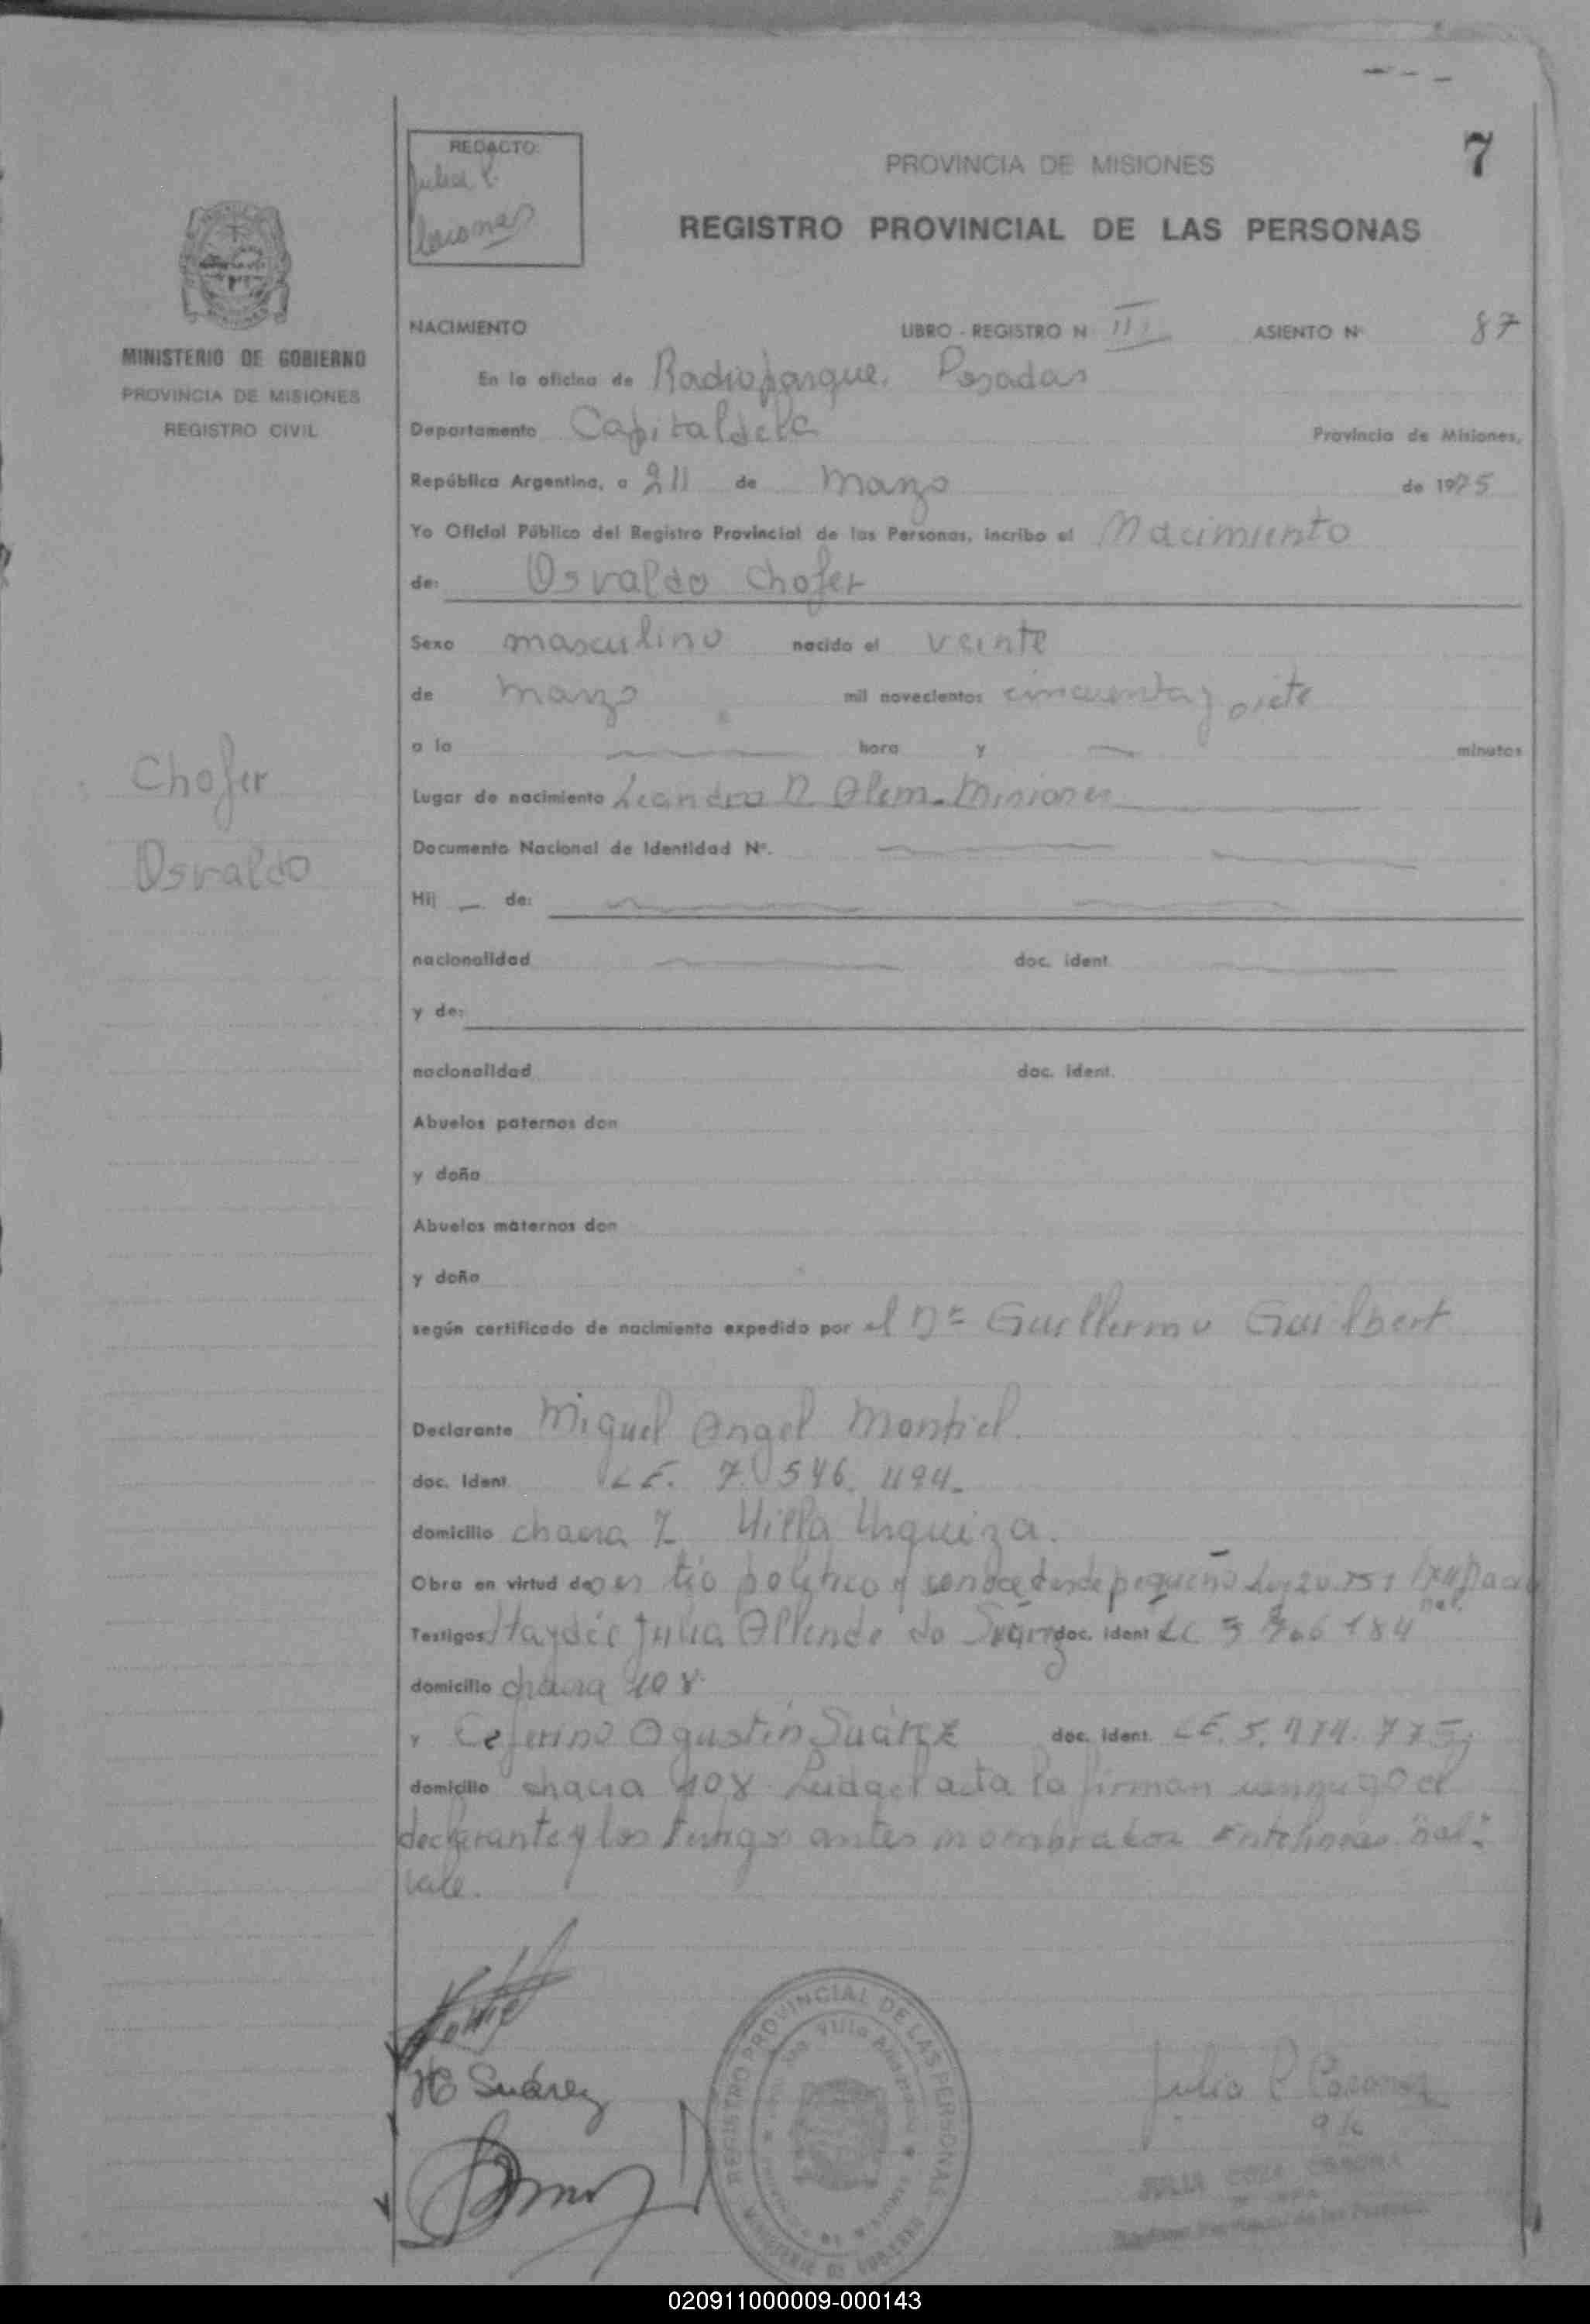 7
REDACTO:
Julia C.
PROVINCIA DE MISIONES
REGISTRO PROVINCIAL DE LAS PERSONAS
MINISTERIO DE GOBIERNO
PROVINCIA DE MISIONES
REGISTRO CIVIL
NACIMIENTO LIBRO - REGISTRO N III ASIENTO Nº 87
En la oficina de Radioparque, Posadas
Departamento Capital de la Provincia de Misiones,
República Argentina, a de Marzo de 1975
Yo Oficial Público del Registro Provincial de las Personas, incribo el Nacimiento
de: Osvaldo Chofer
Sexo masculino nacido el veinte
de Marzo mil novecientos cincuenta y siete
a la hora y minutos
Chofer
Osvaldo
Lugar de nacimiento Leandro N. Alem - Misiones
Documento Nacional de Identidad Nº.
Hij de:
nacionalidad doc. ident.
y de:
nacionalidad doc. ident.
Abuelos paternos don
y doña
Abuelos maternos don
y doña
según certificado de nacimiento expedido por el Dr Guillermo Guilbert
Declarante Miguel Angel Montiel.
doc. Ident. L.E. 7.546.494.
domicilio chacra Villa Urquiza.
Obra en virtud de ser tío político y conoce desde pequeño Ley 20.751
nal.
Testigos Haydée Julia Allende de Suárez doc. ident LC 184
domicilio chacra 108
y Ceferino Agustín Suárez doc. ident. L.E. 5.
domicilio chacra 108 acta la firman conmigo el
declarante y los testigos antes nombrados Entrelíneas "nal"
vale.
H Suárez
REGISTRO PROVINCIAL DE LAS PERSONAS
MINISTERIO DE GOBIERNO
Julia C
020911000009-000143